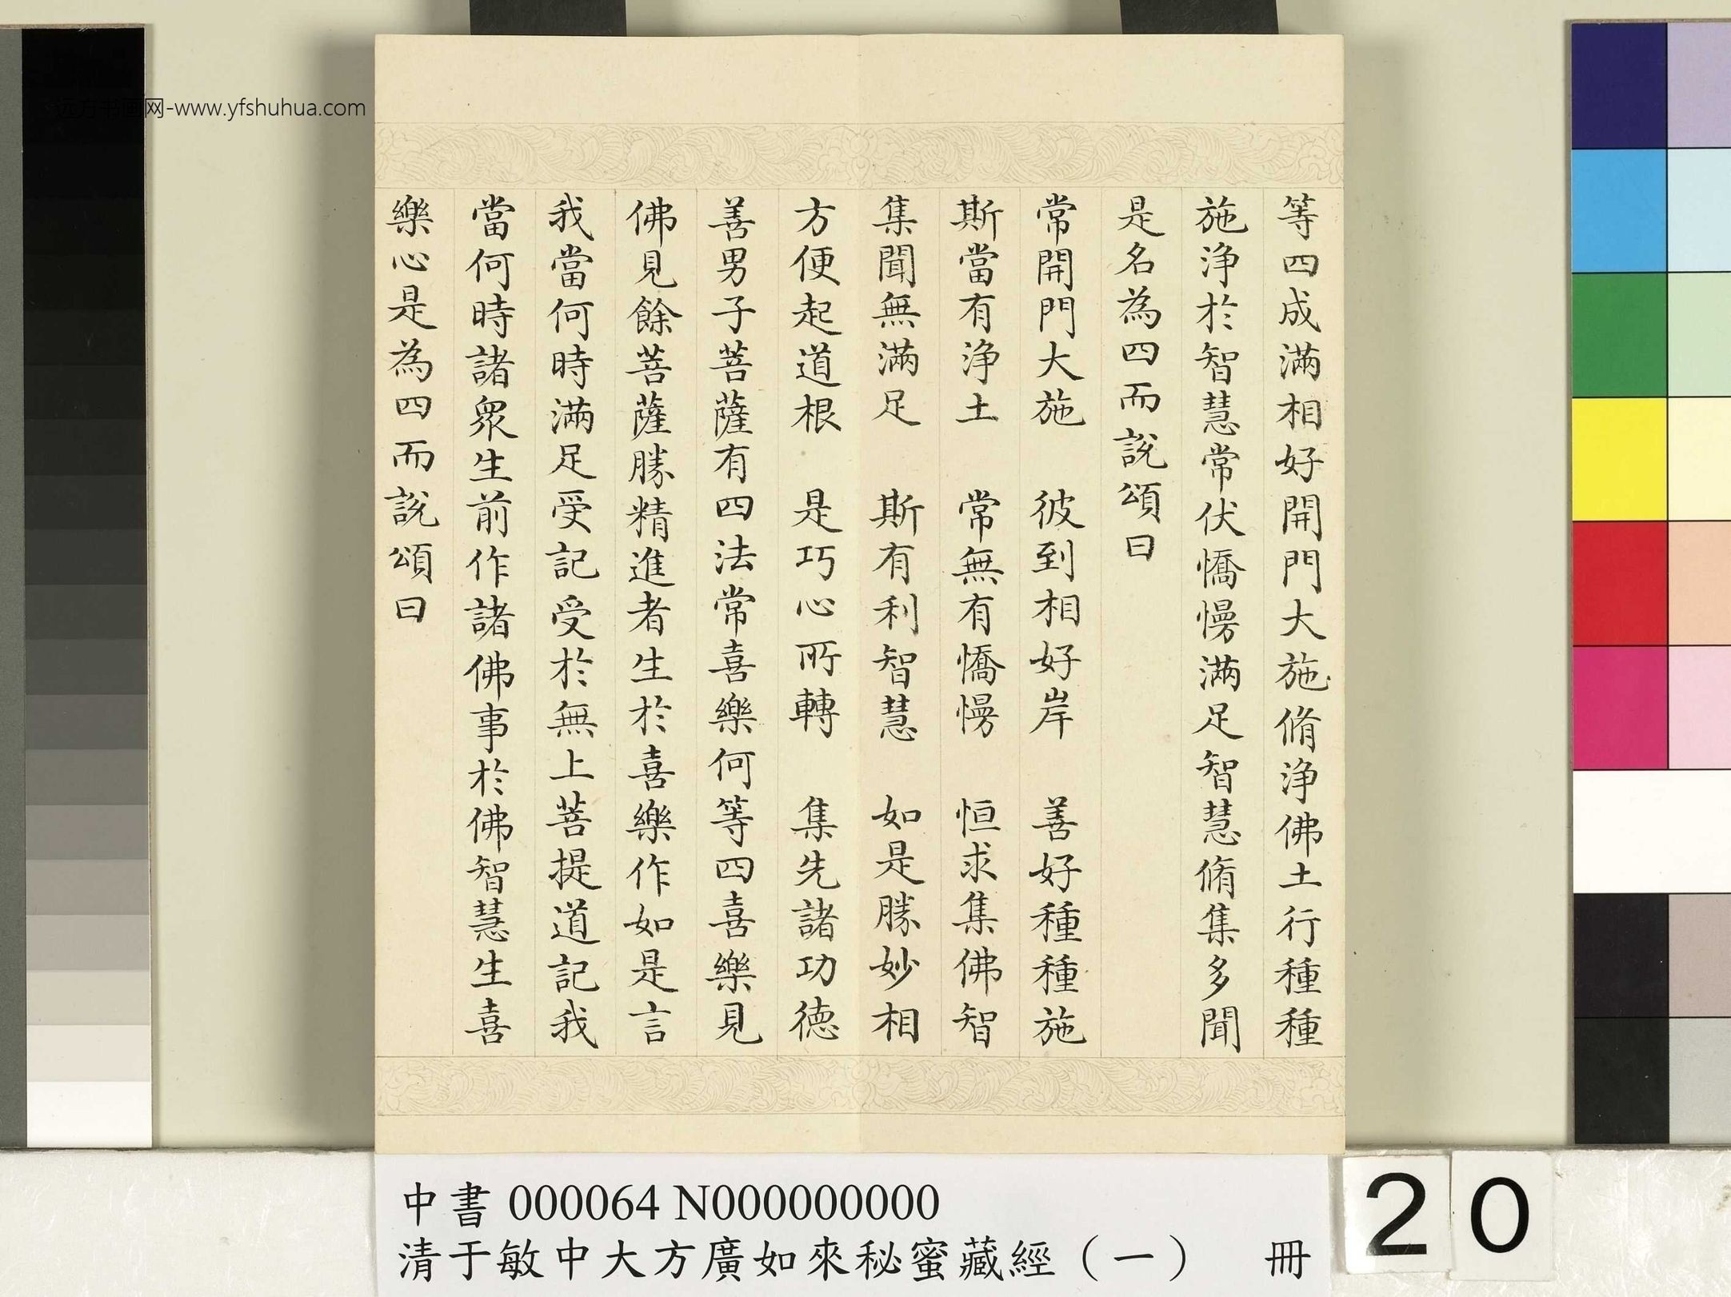 等四成滿相好開門大施脩淨佛土行種種
施淨於智慧常伏憍慢滿足智慧脩集多聞
是名為四而說頌曰
常開門大施　彼到相好岸　善好種種施
斯當有淨土　常無有憍慢　恒求集佛智
集聞無滿足　斯有利智慧　如是勝妙相
方便起道根　是巧心所轉　集先諸功德
善男子菩薩有四法常喜樂何等四喜樂見
佛見餘菩薩勝精進者生於喜樂作如是言
我當何時滿足受記受於無上菩提道記我
當何時諸眾生前作諸佛事於佛智慧生喜
樂心是為四而說頌曰
中書 000064 N000000000
清于敏中大方廣如來秘蜜藏經（一）　冊
20
网-www.yfshuhua.com